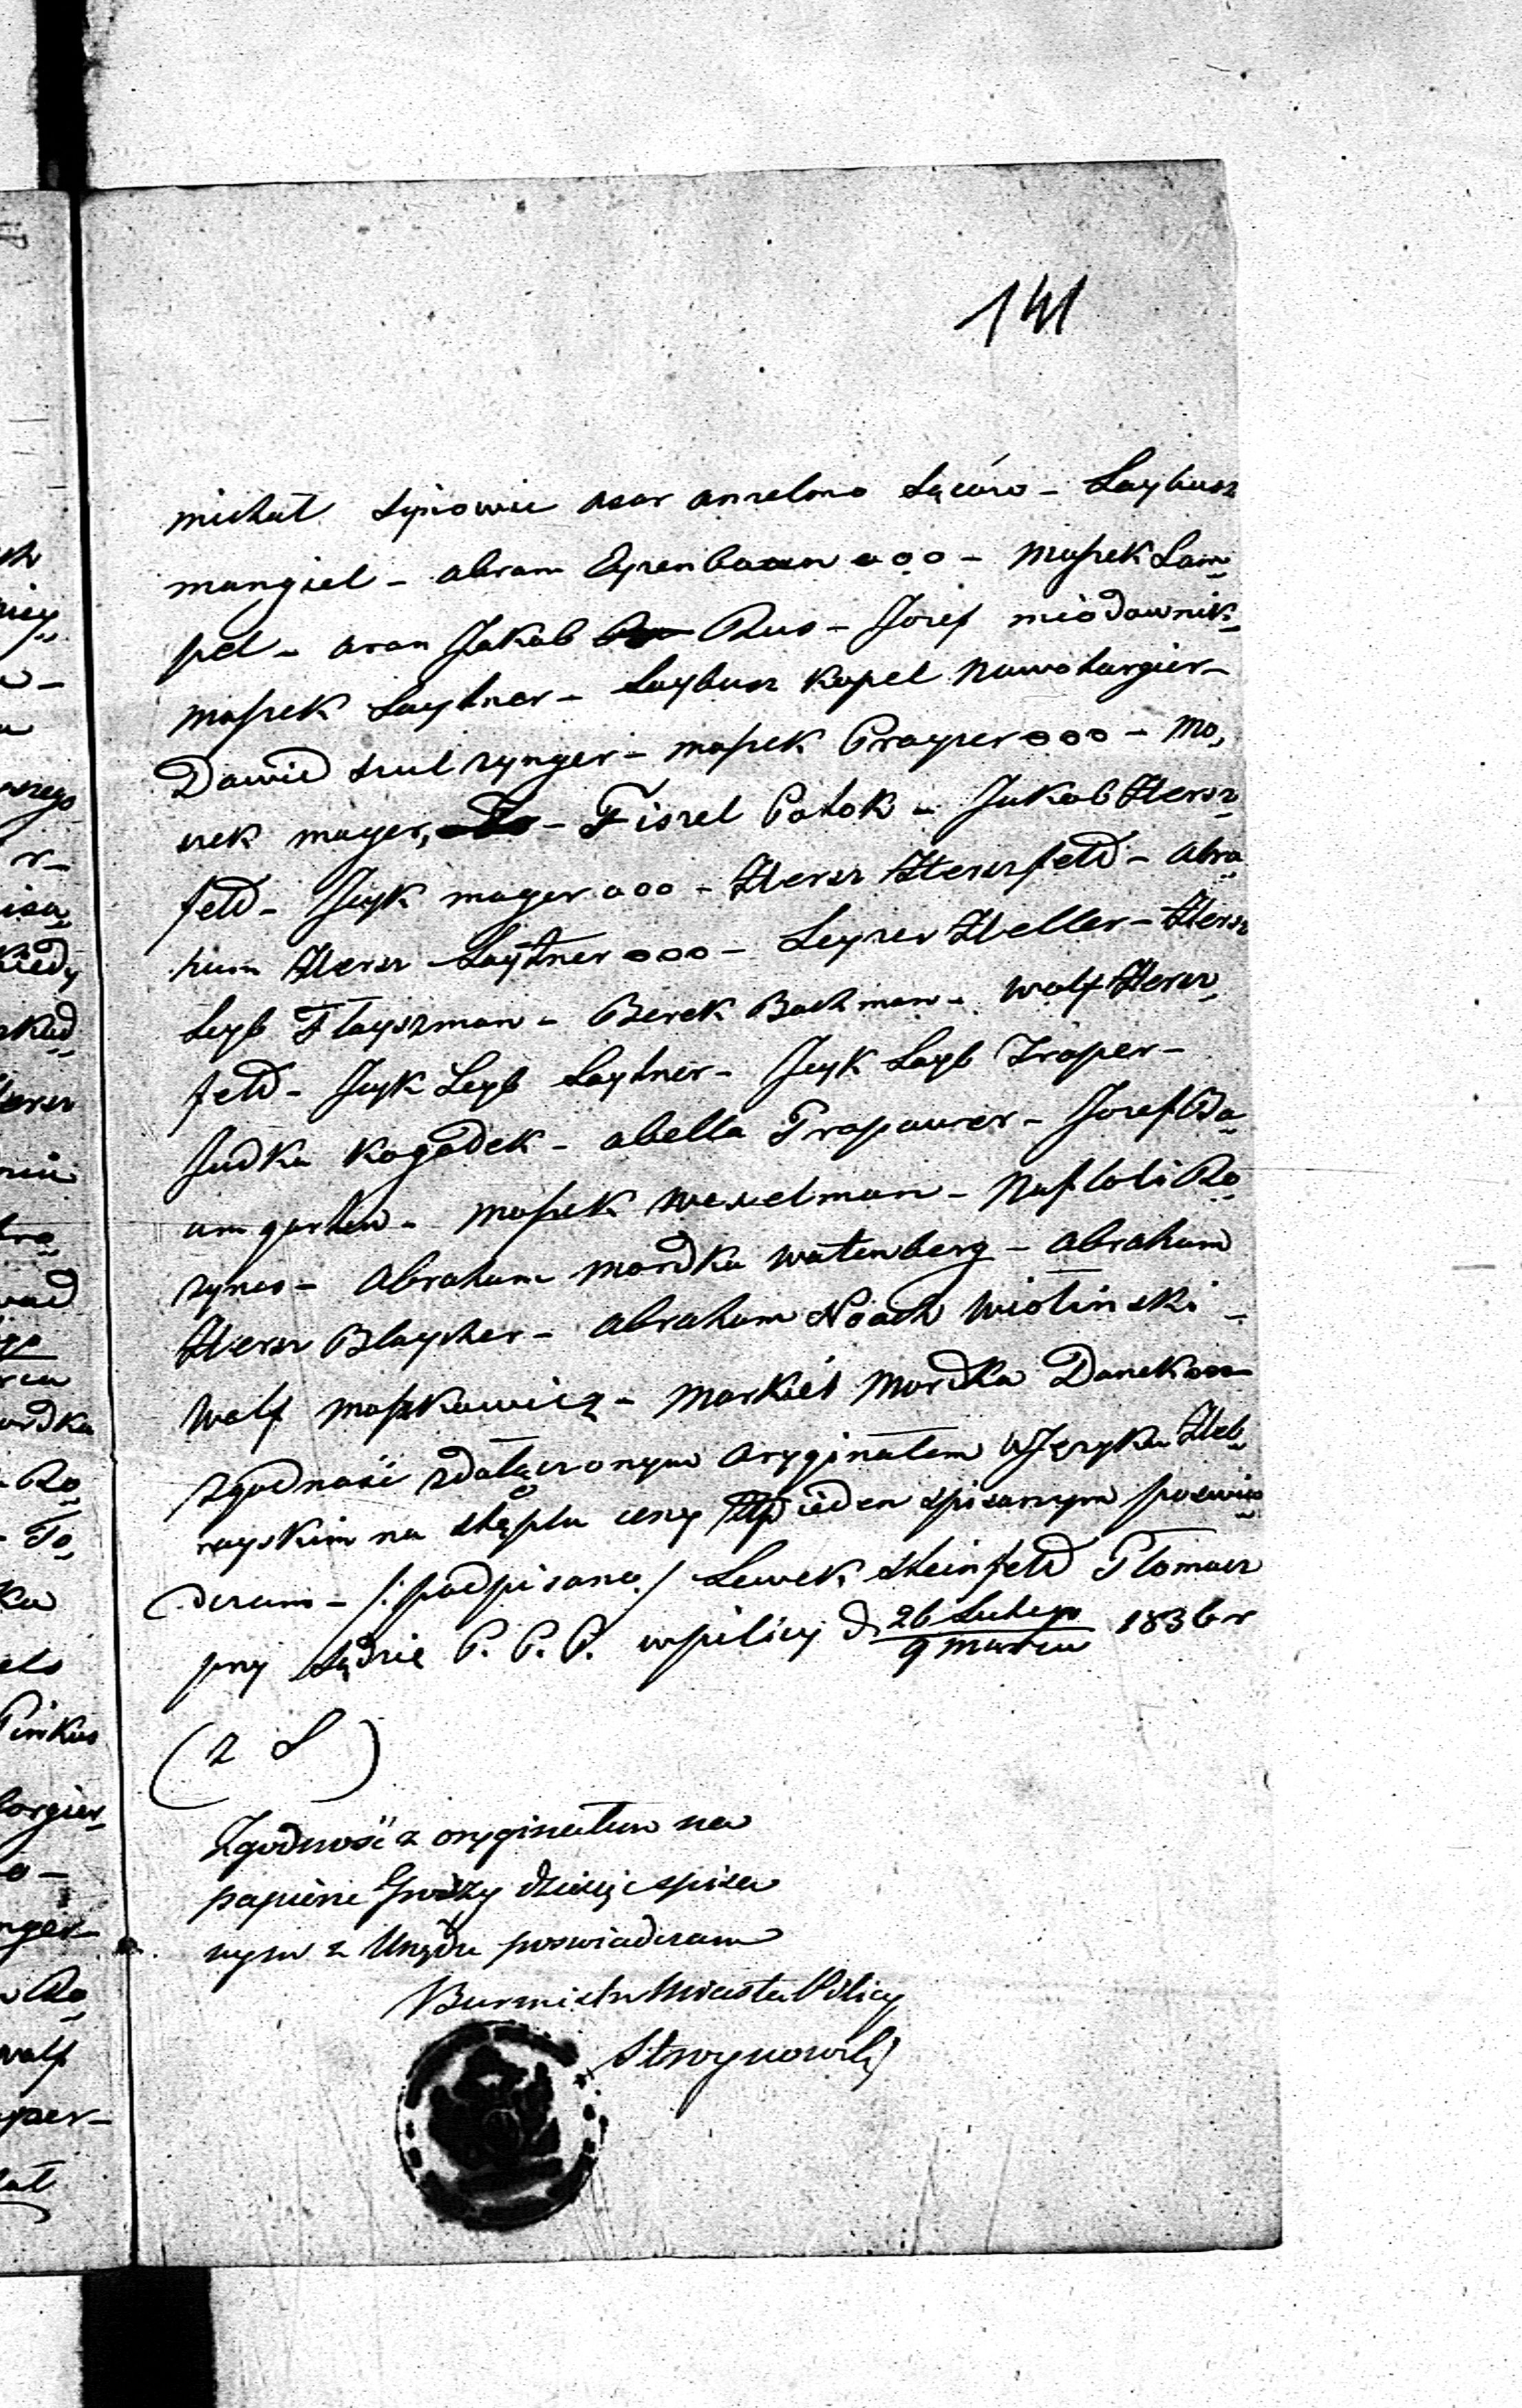 141
michał synowie asar anzelma Sącow - Laybusz
mangiel - abram Eyzenbaum ooo - Moszek Lam„
pel - aron Jakob Rus - Josef miodownik„
moszek Laytner - Laybusz kopel Nowotargier -
Dawid szul zynger - moszek Prayzer ooo - Mo„
szek mayer, - Fiszel Potok - Jakob Hersz„
feld - Jcyk mayer ooo - Hersz Herszfeld - abra„
ham Hersz Laytner ooo - Leyzer Heller - Hersz
Leyb Flayszman - Berek Bachman - Wolf Hersz„
feld - Jcyk Leyb Laytner - Jcyk Layb Traper -
Judka kogodek - abella Prapawer - Josef Ba„
umgarten - moszek Wexelman - Naftoli Ro„
zynes - Abraham mordka Watenberg - abraham
Hersz Blaycher - abraham Noach Wiolinski -
Wolf moszkowicz - Markiel Mordka Danek ooo
zgodność zdołączonym oryginałem w Języku Heb„
rayskim na stęplu ceny Złp ieden spisanym poświa„
dczam - /: podpisano / Lewek Steinfeld Tłomacz
przy Sądzie P. P. P. w pilicy d. 26 Lutego / 9 marca 1836 r
(L S)
Zgodność z oryginałem na
papierze Groszy dziesięć spisa
nym z Urzędu poświadczam
Burmistrz Miasta Pilicy